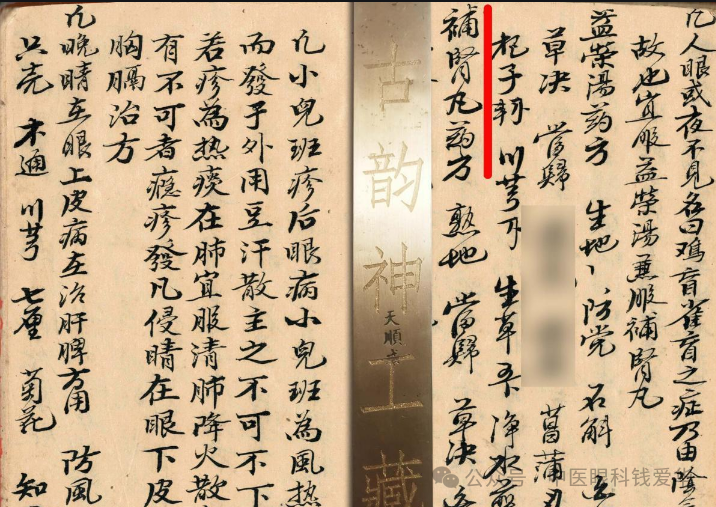 凡人眼或夜不見名曰鸡盲雀盲之症乃由陰
故也宜服益荣湯兼服補腎丸
益荣湯药方 生地 防党 石斛
草决 當歸 菖蒲
杞子 川芎 生草 净水煎
補腎丸药方 熟地 當歸 草决
古韵神工藏
天順
凡小兒班疹后眼病小兒班為風热
而發于外用豆汗散主之不可不下
若疹為热痰在肺宜服清肺降火散
有不可者癮疹發凡侵睛在眼下皮
胸膈治方
凡晚睛在眼上皮病在治肝脾方用 防風
只壳 木通 川芎 七厘 菊花 知
公众号 中医眼科钱爱华